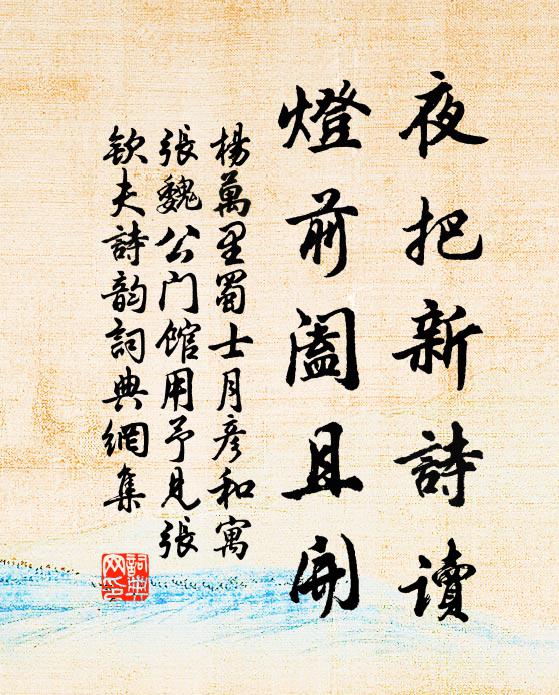 夜把新詩讀
燈前闔且開
楊萬里蜀士月彦和寓
張魏公门館用予見張
欽夫詩韵詞典網集
詞典网印